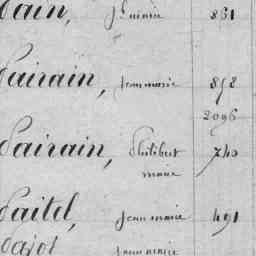 Pain, 861
Pairain, Jean marie 858
2096
Pairain, Philibert 740
marie
Paitel, Jean marie 491
Pajot Jean marie